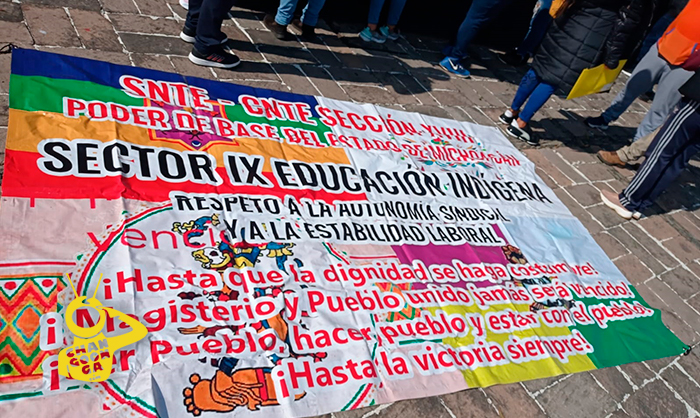 SNTE - CNTE SECCIÓN XVIII
PODER DE BASE DEL ESTADO DE MICHOACÁN
SECTOR IX EDUCACIÓN INDÍGENA
RESPETO A LA AUTONOMÍA SINDICAL
Y A LA ESTABILIDAD LABORAL
¡Hasta que la dignidad se haga costumbre!
¡Magisterio y Pueblo unido jamás será vencido!
¡Ser Pueblo, hacer pueblo y estar con el pueblo!
¡Hasta la victoria siempre!
CHANGOONGA